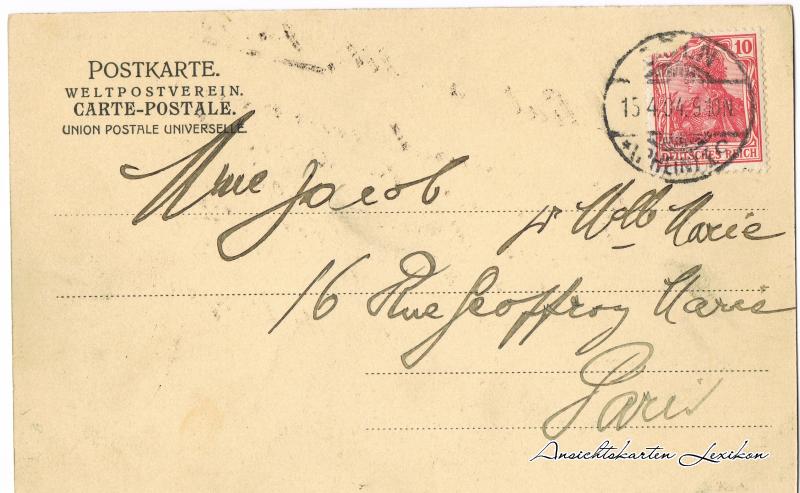 POSTKARTE.
WELTPOSTVEREIN.
CARTE-POSTALE.
UNION POSTALE UNIVERSELLE.
10
DEUTSCHES REICH
15.4.04.9-10N.
Mme Jacob
pr Melle Marie
16 Rue Geoffroy Marie
Paris
Ansichtskarten Lexikon